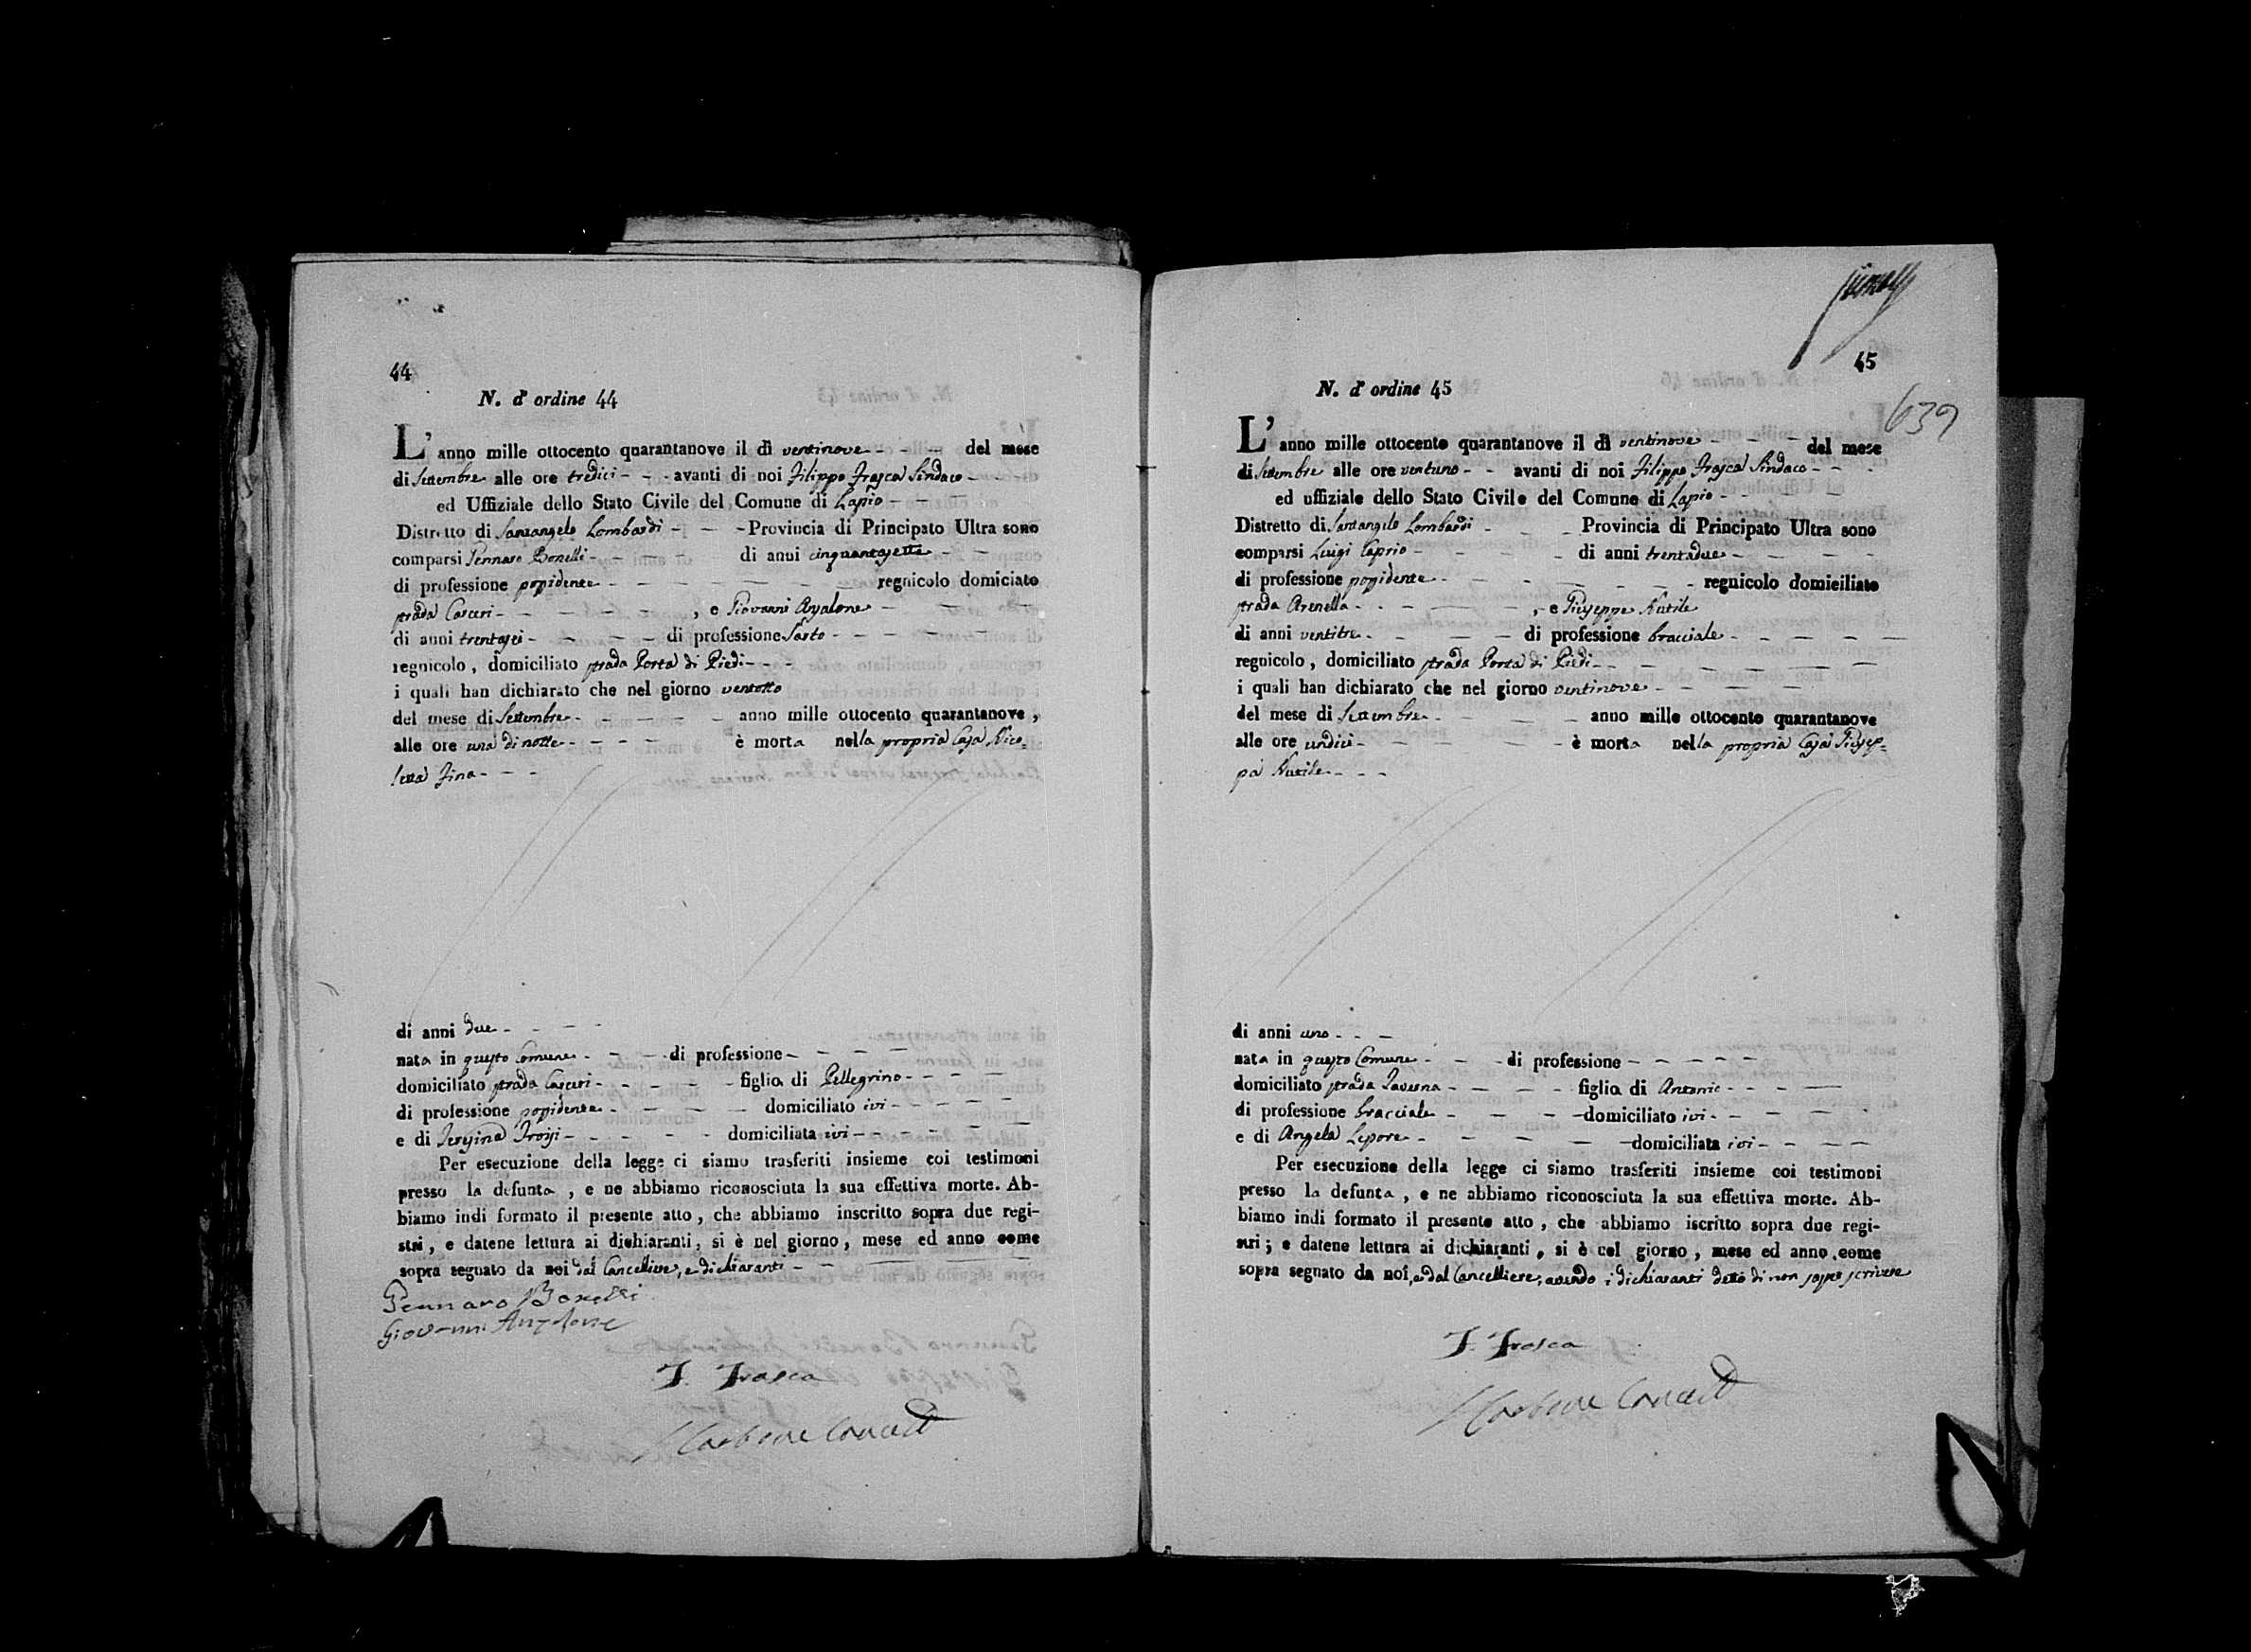 44
N. d'ordine 44
L'anno mille ottocento quarantanove il dì ventinove - - - del mese
di Settembre alle ore tredici - - - avanti di noi Filippo Frasca Sindaco -
ed Uffiziale dello Stato Civile del Comune di Lapio - -
Distretto di Santangelo Lombardi - - - Provincia di Principato Ultra sono
comparsi Gennaro Bonelli - - - - di anni cinquantasette - -
di professione possidente - - - - - - regnicolo domiciato
strada Casceri - - - - - , e Giovanni Anzalone - - -
di anni trentasei - - - - di professione Sarto - - - - - -
regnicolo, domiciliato strada Porta di Piedi - - -
i quali han dichiarato che nel giorno ventotto
del mese di Settembre - - - - - anno mille ottocento quarantanove,
alle ore una di notte - - - - è morta nella propria Casa Nico=
letta Fina - - -
di anni due - - - -
nata in questo Comune - - - di professione - - - -
domiciliato strada Casceri - - - - - figlia di Pellegrino - - - -
di professione possidente - - - - domiciliato ivi - - - - -
e di Teresina Troisi - - - - - domiciliata ivi - - - - -
Per esecuzione della legge ci siamo trasferiti insieme coi testimoni
presso la defunta, e ne abbiamo riconosciuta la sua effettiva morte. Ab-
biamo indi formato il presente atto, che abbiamo inscritto sopra due regi-
stri, e datene lettura ai dichiaranti, si è nel giorno, mese ed anno come
sopra segnato da noi dal Cancelliere, e dichiaranti - -
Gennaro Bonelli
Giovanni Anzalone
F. Frasca
Carbone Canc
45
N. d'ordine 45
639
L'anno mille ottocento quarantanove il dì ventinove - - - del mese
di Settembre alle ore ventuno - - avanti di noi Filippo Frasca Sindaco - - -
ed uffiziale dello Stato Civile del Comune di Lapio - - - -
Distretto di Santangelo Lombardi - - Provincia di Principato Ultra sono
comparsi Luigi Caprio - - - - - di anni trentadue - - - -
di professione possidente - - - - - - regnicolo domiciliato
strada Arenella - - - - - , e Giuseppe Nutile
di anni ventitre - - - - di professione bracciale - - - - -
regnicolo, domiciliato strada Porta di Piedi - - - - - - -
i quali han dichiarato che nel giorno ventinove - - - -
del mese di Settembre - - - - anno mille ottocento quarantanove
alle ore undici - - - - - è morta nella propria Casa Giusep=
pa Nutile - - -
di anni uno - - -
nata in questo Comune - - - di professione - - - - - -
domiciliato strada Taverna - - - - - figlia di Antonio - - - -
di professione bracciale - - - - domiciliato ivi - - - - -
e di Angela Lepore - - - - - domiciliata ivi - - - -
Per esecuzione della legge ci siamo trasferiti insieme coi testimoni
presso la defunta, e ne abbiamo riconosciuta la sua effettiva morte. Ab-
biamo indi formato il presente atto, che abbiamo iscritto sopra due regi-
stri; e datene lettura ai dichiaranti, si è col giorno, mese ed anno come
sopra segnato da noi, e dal Cancelliere, avendo i dichiaranti detto di non saper scrivere
F. Frasca
Carbone Canc